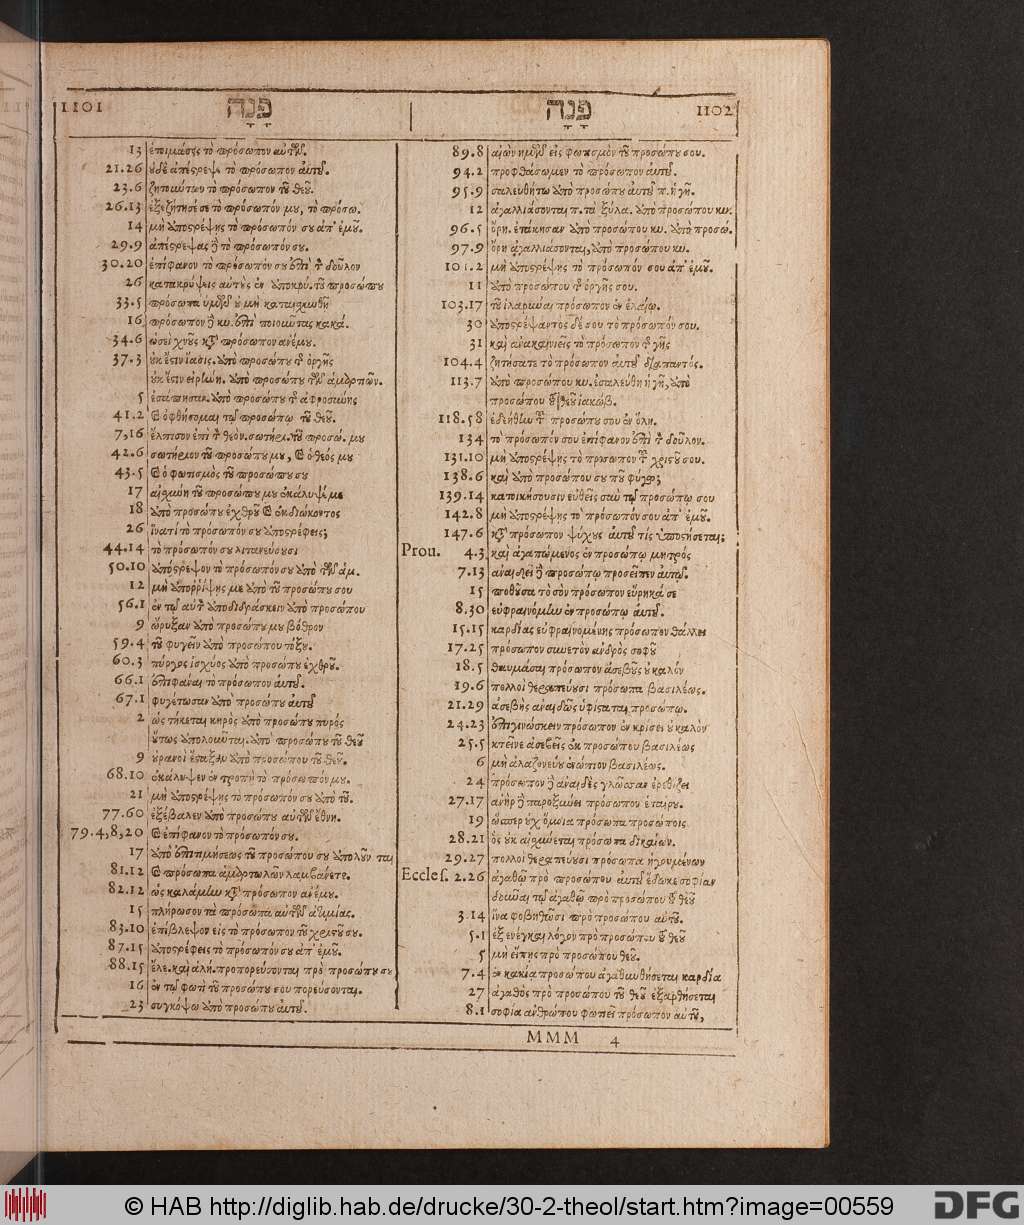 1101 פָּנָה
13 ἑτοιμάσῃς τὸ πρόσωπον αὐτῶν.
21.26 οὐδὲ ἀπέστρεψε τὸ πρόσωπον αὐτοῦ.
23.6 ζητούντων τὸ πρόσωπον τοῦ θεοῦ.
26.13 ἐξεζήτησέ σε τὸ πρόσωπόν μου, τὸ πρόσω.
14 μὴ ἀποστρέψῃς τὸ πρόσωπόν σου ἀπ' ἐμοῦ.
29.9 ἀπέστρεψας δὲ τὸ πρόσωπόν σου.
30.20 ἐπίφανον τὸ πρόσωπόν σου ἐπὶ τὸν δοῦλον
26 κατακρύψεις αὐτοὺς ἐν ἀποκρύ. τοῦ προσώπου
33.5 πρόσωπα ὑμῶν οὐ μὴ καταισχυνθῇ
16 πρόσωπον δὲ κυ. ἐπὶ ποιοῦντας κακά.
34.6 ὡσεὶ χνοῦς κατὰ πρόσωπον ἀνέμου.
37.3 οὐκ ἔστιν ἴασις. ἀπὸ προσώπου τῆς ὀργῆς
οὐκ ἔστιν εἰρήνη. ἀπὸ προσώπου τῶν ἁμαρτιῶν.
5 ἐσάπησαν. ἀπὸ προσώπου τῆς ἀφροσύνης
41.2 καὶ ὀφθήσομαι τῷ προσώπῳ τοῦ θεοῦ.
7,16 ἔλπισον ἐπὶ τὸν θεὸν. σωτήρι. τοῦ προσώ. μου
42.6 σωτήριον τοῦ προσώπου μου, καὶ ὁ θεός μου
43.5 καὶ ὁ φωτισμὸς τοῦ προσώπου σου
17 αἰσχύνη τοῦ προσώπου μου ἐκάλυψέ με
18 ἀπὸ προσώπου ἐχθροῦ καὶ ἐκδιώκοντος
26 ἵνα τί τὸ πρόσωπόν σου ἀποστρέφεις;
44.14 τὸ πρόσωπόν σου λιτανεύσουσι
50.10 ἀπόστρεψον τὸ πρόσωπόν σου ἀπὸ τῶν ἁμ.
12 μὴ ἀπορρίψῃς με ἀπὸ τοῦ προσώπου σου
56.1 ἐν τῷ αὐτὸν ἀποδιδράσκειν ἀπὸ προσώπου
9 ὤρυξαν ἀπὸ προσώπου μου βόθρον
59.4 τοῦ φυγεῖν ἀπὸ προσώπου τόξου.
60.3 πύργος ἰσχύος ἀπὸ προσώπου ἐχθροῦ.
66.1 ἐπιφάναι τὸ πρόσωπον αὐτοῦ.
67.1 φυγέτωσαν ἀπὸ προσώπου αὐτοῦ
2 ὡς τήκεται κηρὸς ἀπὸ προσώπου πυρός
οὕτως ἀπολοῦνται. ἀπὸ προσώπου τοῦ θεοῦ
9 οὐρανοὶ ἔσταξαν ἀπὸ προσώπου τοῦ θεοῦ.
68.10 ἐκάλυψεν ἐντροπὴ τὸ πρόσωπόν μου.
21 μὴ ἀποστρέψῃς τὸ πρόσωπόν σου ἀπὸ τοῦ.
77.60 ἐξέβαλεν ἀπὸ προσώπου αὐτῶν ἔθνη.
79.4,8,20 καὶ ἐπίφανον τὸ πρόσωπόν σου.
17 ἀπὸ ἐπιτιμήσεως τοῦ προσώπου σου ἀπολοῦνται
81.12 καὶ πρόσωπα ἁμαρτωλῶν λαμβάνετε.
82.12 ὡς καλάμην κατὰ πρόσωπον ἀνέμου.
15 πλήρωσον τὰ πρόσωπα αὐτῶν ἀτιμίας.
83.10 ἐπίβλεψον εἰς τὸ πρόσωπον τοῦ χριστοῦ σου.
87.15 ἀποστρέφεις τὸ πρόσωπόν σου ἀπ' ἐμοῦ.
88.15 ἔλε. καὶ ἀλή. προπορεύονται πρὸ προσώπου σου
16 ἐν τῷ φωτὶ τοῦ προσώπου σου πορεύσονται.
23 συγκόψω ἀπὸ προσώπου αὐτοῦ.
פָּנָה 1102
89.8 αἰὼν ἡμῶν εἰς φωτισμὸν τοῦ προσώπου σου.
94.2 προφθάσωμεν τὸ πρόσωπον αὐτοῦ.
95.9 σαλευθήτω ἀπὸ προσώπου αὐτοῦ π. ἡ γῆ.
12 ἀγαλλιάσονται π. τὰ ξύλα. ἀπὸ προσώπου κυ.
96.5 ὄρη. ἐτάκησαν ἀπὸ προσώπου κυ. ἀπὸ προσώ.
97.9 ὄρη ἀγαλλιάσονται, ἀπὸ προσώπου κυ.
101.2 μὴ ἀποστρέψῃς τὸ πρόσωπόν σου ἀπ' ἐμοῦ.
11 ἀπὸ προσώπου τῆς ὀργῆς σου.
103.17 τοῦ ἱλαρῦναι πρόσωπον ἐν ἐλαίῳ.
30 ἀποστρέψαντος δέ σου τὸ πρόσωπόν σου.
31 καὶ ἀνακαινιεῖς τὸ πρόσωπον τῆς γῆς
104.4 ζητήσατε τὸ πρόσωπον αὐτοῦ διαπαντός.
113.7 ἀπὸ προσώπου κυ. ἐσαλεύθη ἡ γῆ, ἀπὸ
προσώπου τοῦ θεοῦ ἰακώβ.
118.58 ἐδεήθην τοῦ προσώπου σου ἐν ὅλῃ.
134 τὸ πρόσωπόν σου ἐπίφανον ἐπὶ τὸν δοῦλον.
131.10 μὴ ἀποστρέψῃς τὸ πρόσωπον τοῦ χριστοῦ σου.
138.6 καὶ ἀπὸ προσώπου σου ποῦ φύγω;
139.14 κατοικήσουσιν εὐθεῖς σὺν τῷ προσώπῳ σου
142.8 μὴ ἀποστρέψῃς τὸ πρόσωπόν σου ἀπ' ἐμοῦ.
147.6 κατὰ πρόσωπον ψύχους αὐτοῦ τίς ὑποστήσεται;
Prou. 4.3 καὶ ἀγαπώμενος ἐν προσώπῳ μητρός
7.13 ἀναιδεῖ δὲ προσώπῳ προσεῖπεν αὐτῷ.
15 ποθοῦσα τὸ σὸν πρόσωπον εὕρηκά σε
8.30 εὐφραινόμην ἐν προσώπῳ αὐτοῦ.
15.15 καρδίας εὐφραινομένης πρόσωπον θάλλει
17.25 πρόσωπον συνετὸν ἀνδρὸς σοφοῦ
18.5 θαυμάσαι πρόσωπον ἀσεβοῦς οὐ καλόν
19.6 πολλοὶ θεραπεύουσι πρόσωπα βασιλέως.
21.29 ἀσεβὴς ἀναιδῶς ὑφίσταται προσώπῳ.
24.23 ἐπιγινώσκειν πρόσωπον ἐν κρίσει οὐ καλὸν
25.5 κτεῖνε ἀσεβεῖς ἐκ προσώπου βασιλέως
6 μὴ ἀλαζονεύου ἐνώπιον βασιλέως.
24 πρόσωπον δὲ ἀναιδὲς γλῶσσαν ἐρεθίζει
27.17 ἀνὴρ δὲ παροξύνει πρόσωπον ἑταίρου.
19 ὥσπερ οὐχ ὅμοια πρόσωπα προσώποις
28.21 ὃς οὐκ αἰσχύνεται πρόσωπα δικαίων.
29.27 πολλοὶ θεραπεύουσι πρόσωπα ἡγουμένων
Eccles. 2.26 ἀγαθῷ πρὸ προσώπου αὐτοῦ ἔδωκε σοφίαν
δοῦναι τῷ ἀγαθῷ πρὸ προσώπου τοῦ θεοῦ
3.14 ἵνα φοβηθῶσι πρὸ προσώπου αὐτοῦ.
5.1 ἐξενέγκαι λόγον πρὸ προσώπου τοῦ θεοῦ
5 μὴ εἴπῃς πρὸ προσώπου θεοῦ.
7.4 ἐν κακίᾳ προσώπου ἀγαθυνθήσεται καρδία
27 ἀγαθὸς πρὸ προσώπου τοῦ θεοῦ ἐξαρθήσεται
8.1 σοφία ἀνθρώπου φωτιεῖ πρόσωπον αὐτοῦ,
MMM 4
© HAB http://diglib.hab.de/drucke/30-2-theol/start.htm?image=00559
DFG